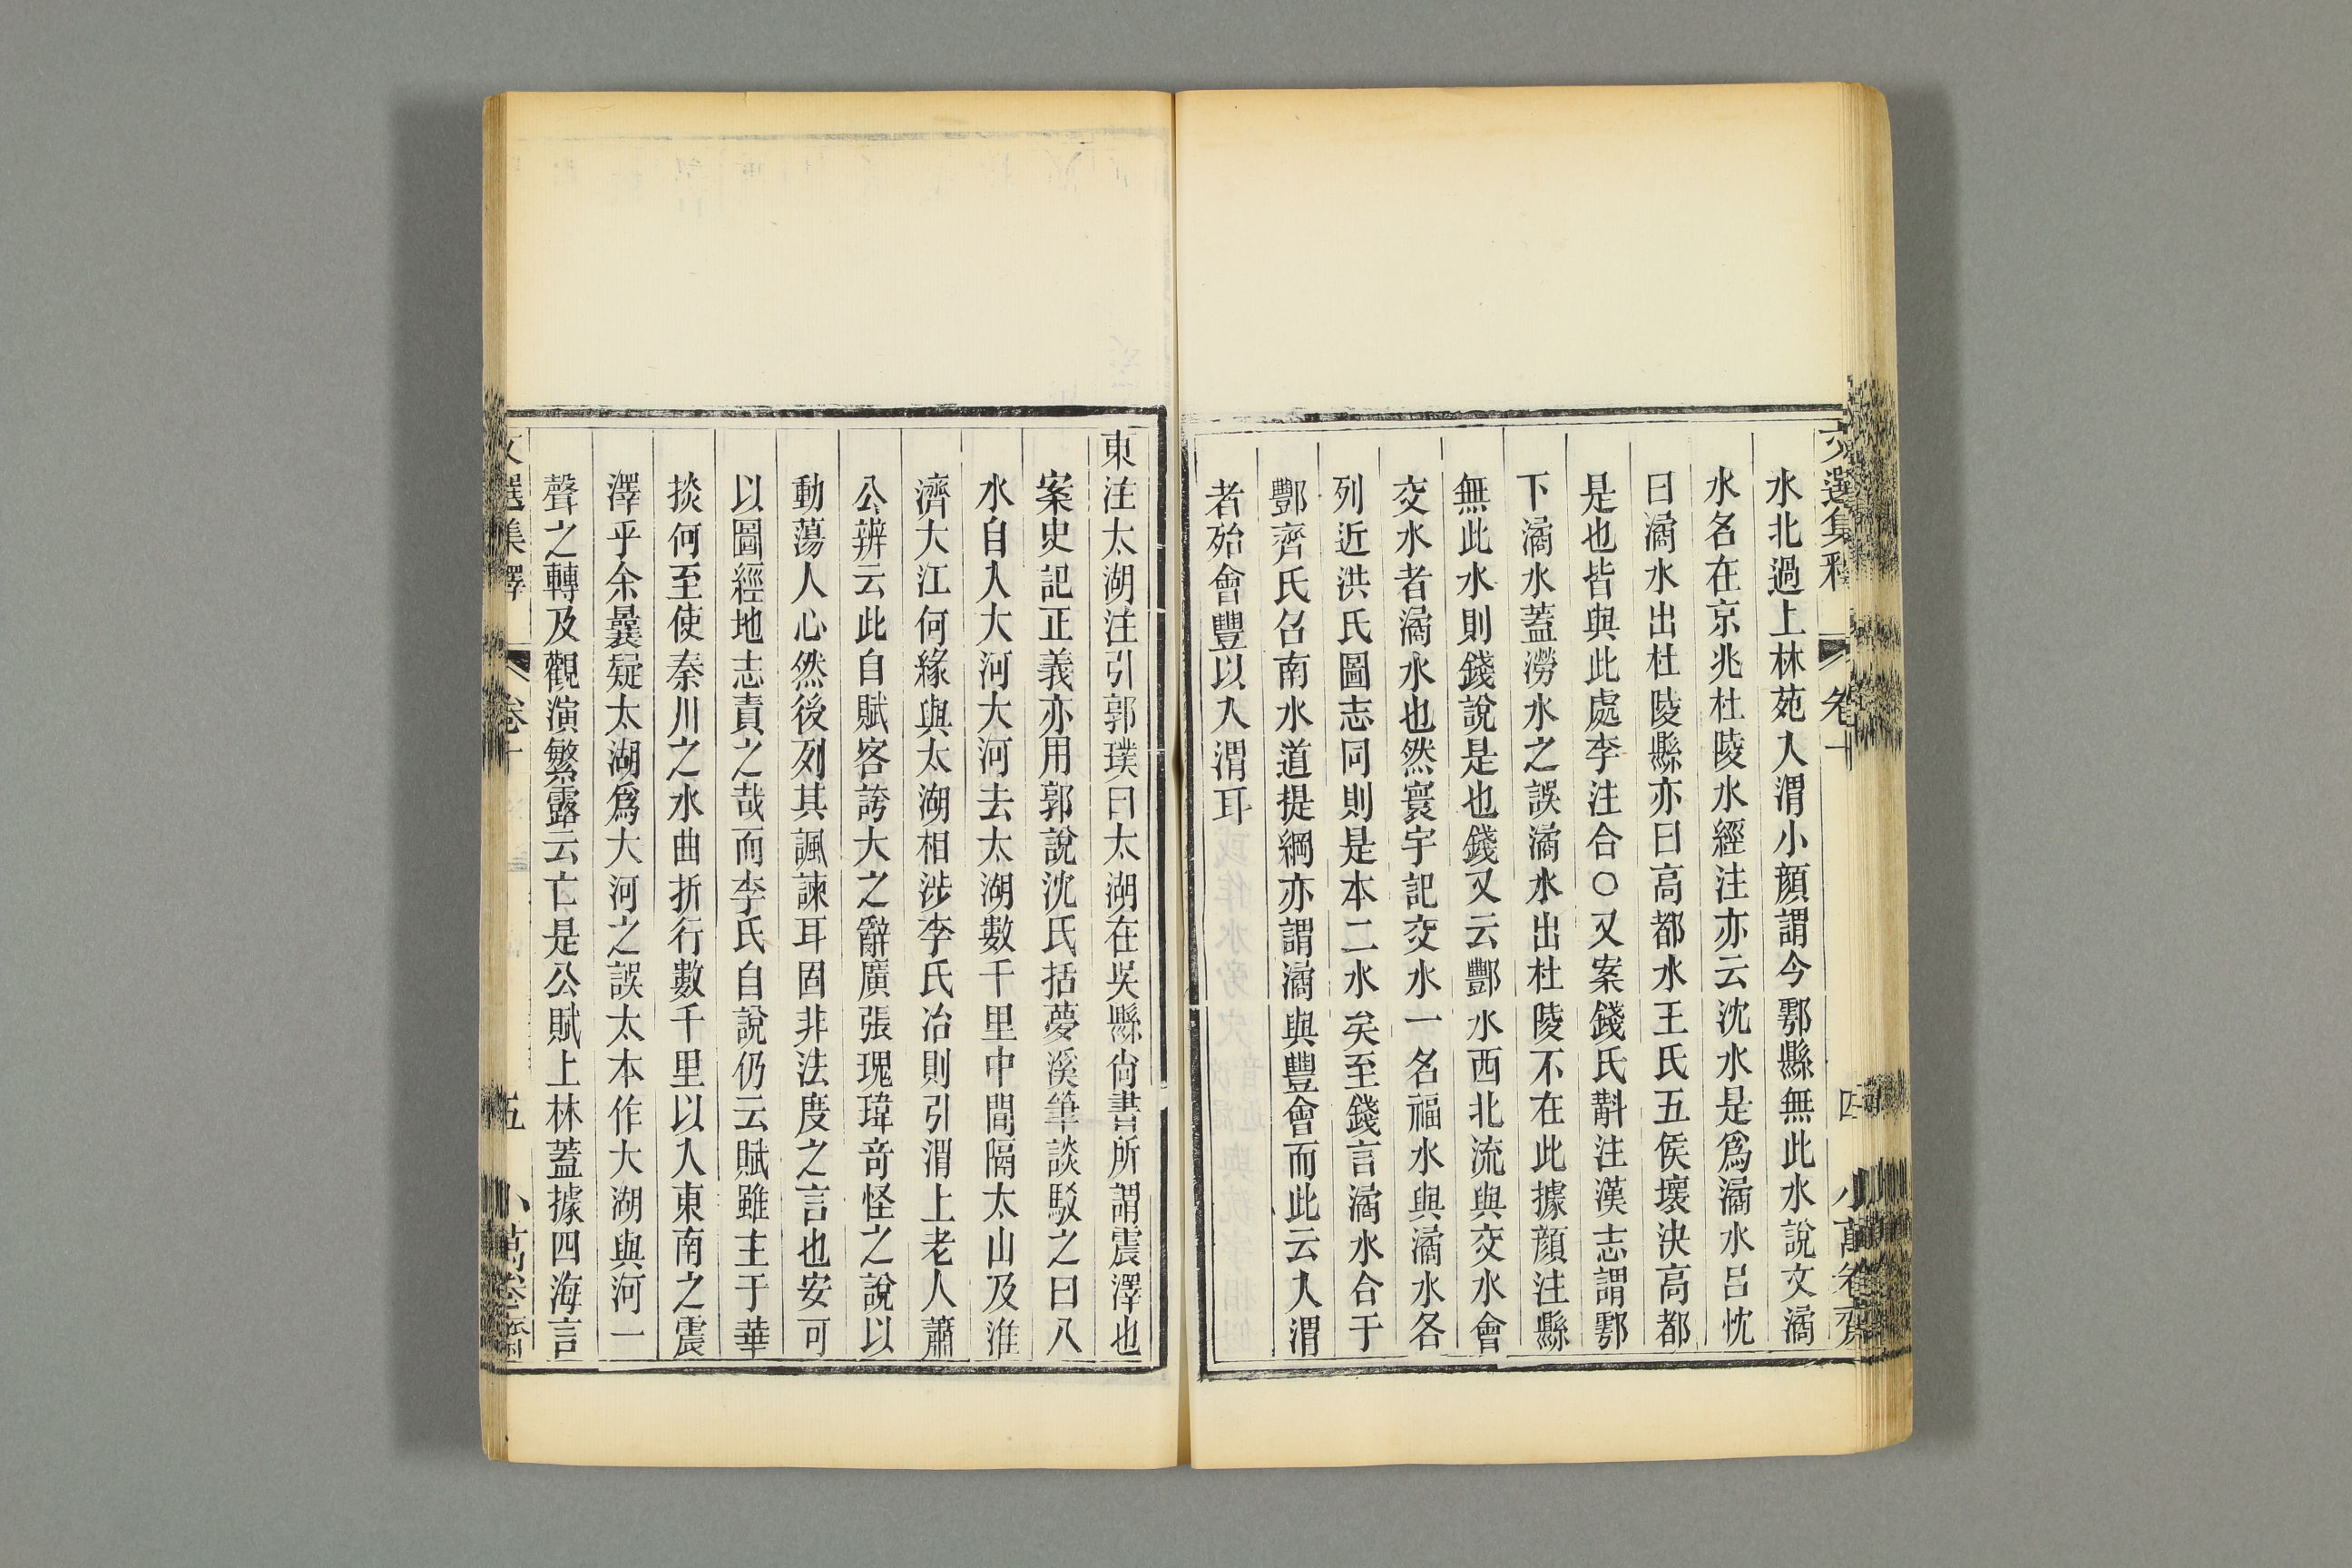 文選集釋 卷十 四 小萬卷齋
水北過上林苑入渭小顏謂今鄠縣無此水說文潏
水名在京兆杜陵水經注亦云沈水是爲潏水呂忱
曰潏水出杜陵縣亦曰高都水王氏五侯壞決高都
是也皆與此處李注合○又案錢氏斠注漢志謂鄠
下潏水蓋澇水之誤潏水出杜陵不在此據顏注縣
無此水則錢說是也錢又云酆水西北流與交水會
交水者潏水也然寰宇記交水一名福水與潏水各
列近洪氏圖志同則是本二水矣至錢言潏水合于
酆齊氏召南水道提綱亦謂潏與豐會而此云入渭
者殆會豐以入渭耳
東注太湖注引郭璞曰太湖在吳縣尙書所謂震澤也
案史記正義亦用郭說沈氏括夢溪筆談駁之曰八
水自入大河大河去太湖數千里中間隔太山及淮
濟大江何緣與太湖相涉李氏冶則引渭上老人蕭
公辨云此自賦客誇大之辭廣張瑰瑋奇怪之說以
動蕩人心然後列其諷諫耳固非法度之言也安可
以圖經地志責之哉而李氏自說仍云賦雖主于華
掞何至使秦川之水曲折行數千里以入東南之震
澤乎余曩疑太湖爲大河之誤太本作大湖與河一
聲之轉及觀演繁露云亡是公賦上林蓋據四海言
文選集釋 卷十 五 小萬卷齋